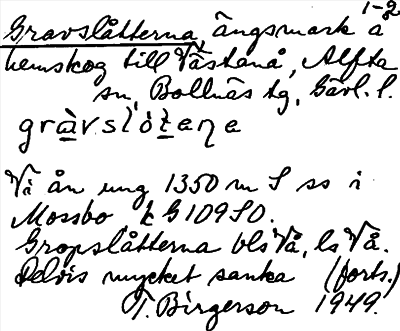 1-2
Gravslåtterna, ängsmark å
hemskog till Västanå, Alfta
sn, Bollnäs tg, Gävl. l.
gràvslòtaŋa
Vi ån ung 1350 m S ss i
Mossbo k G 109 S O.
Gropslåtterna bls Vå, ls Vå.
Delvis mycket sanka (forts.)
T. Birgerson 1949.